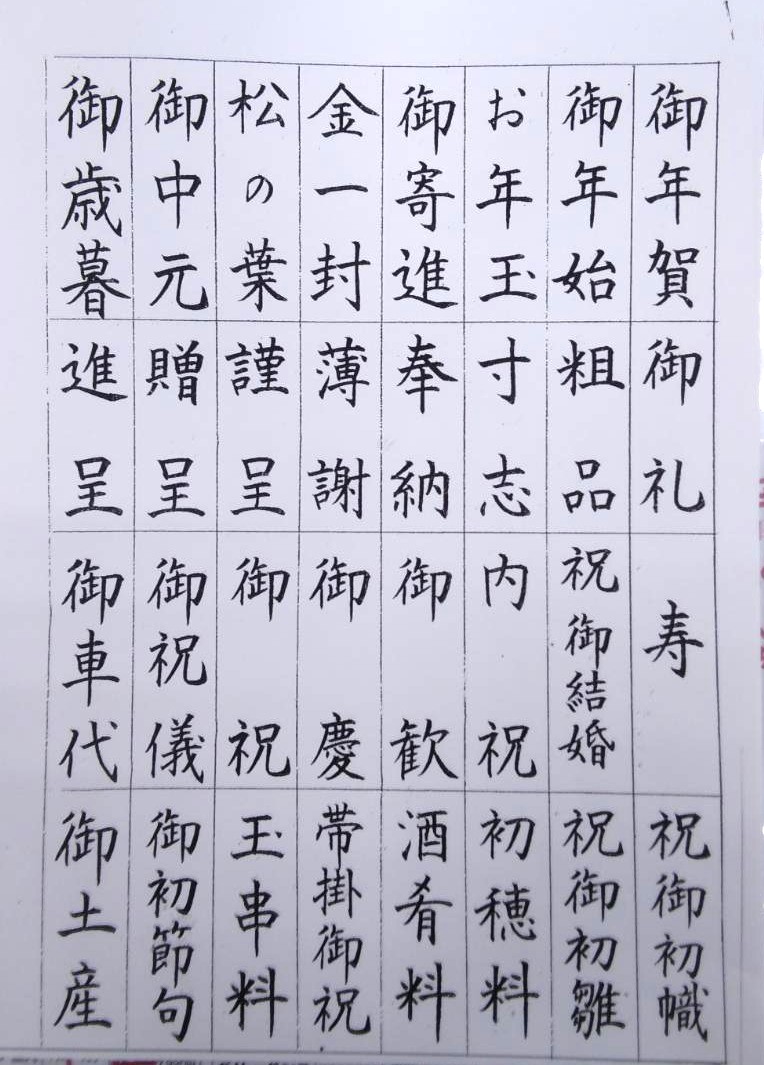 御年賀
御年始
お年玉
御寄進
金一封
松の葉
御中元
御歳暮
御礼
粗品
寸志
奉納
薄謝
謹呈
贈呈
進呈
寿
祝御結婚
内祝
御歓
御慶
御祝
御祝儀
御車代
祝御初幟
祝御初雛
初穂料
酒肴料
帯掛御祝
玉串料
御初節句
御土産